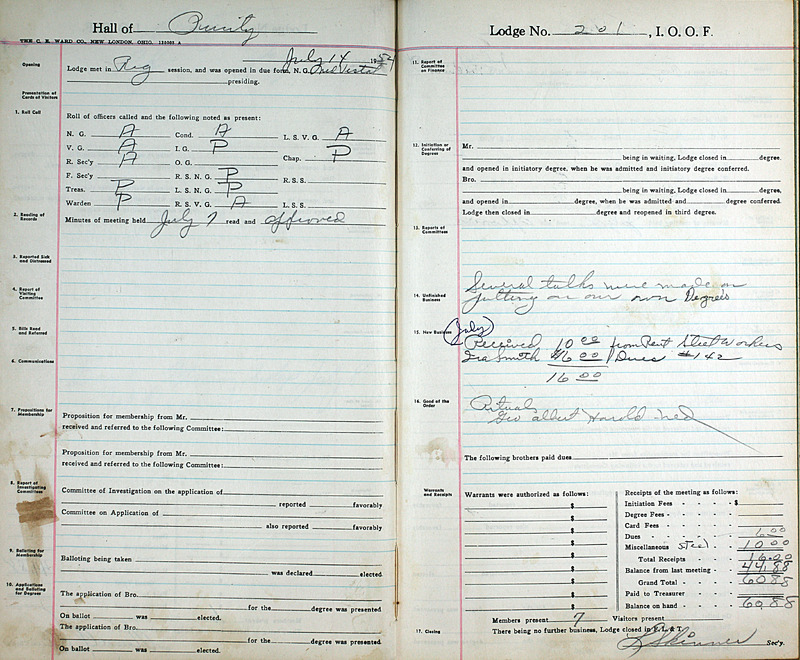 Hall of Purity
THE C. E. WARD CO., NEW LONDON, OHIO. 120303 A
July 14 19
Opening
Lodge met in Reg session, and was opened in due form, N. G.
presiding.
Presentation of Cards of Visitors
1. Roll Call
Roll of officers called and the following noted as present:
N. G. A Cond. A L. S. V. G. A
V. G. A I. G. P Chap. P
R. Sec'y A O. G.
F. Sec'y R. S. N. G. P R. S. S.
Treas. P L. S. N. G. P
Warden P R. S. V. G. A L. S. S.
2. Reading of Records
Minutes of meeting held July 7 read and approved
3. Reported Sick and Distressed
4. Report of Visiting Committee
5. Bills Read and Referred
6. Communications
7. Propositions for Membership
Proposition for membership from Mr.
received and referred to the following Committee:
Proposition for membership from Mr.
received and referred to the following Committee:
8. Report of Investigating Committees
Committee of Investigation on the application of
reported favorably
Committee on Application of
also reported favorably
9. Balloting for Membership
Balloting being taken
was declared elected
10. Applications and Balloting for Degrees
The application of Bro.
for the degree was presented
On ballot was elected.
The application of Bro.
for the degree was presented
On ballot was elected.
Lodge No. 201, I. O. O. F.
11. Report of Committee on Finance
12. Initiation or Conferring of Degrees
Mr.
being in waiting, Lodge closed in degree.
and opened in initiatory degree, when he was admitted and initiatory degree conferred.
Bro.
being in waiting, Lodge closed in degree,
and opened in degree, when he was admitted and degree conferred.
Lodge then closed in degree and reopened in third degree.
13. Reports of Committees
14. Unfinished Business
Several talks were made on
putting on our own Degrees
15. New Business
(July)
Received 10 00 from Rent Steel Workers
Ira Smith $6 00 Dues #142
16 00
16. Good of the Order
Ritual
Geo Albert Harold Ned
The following brothers paid dues
Warrants and Receipts
Warrants were authorized as follows:
$
$
$
$
$
$
$
Receipts of the meeting as follows:
Initiation Fees - - - - $
Degree Fees -
Card Fees
Dues 6.00
Miscellaneous Steel 10 00
Total Receipts 16.00
Balance from last meeting - 44.88
Grand Total - 60 88
Paid to Treasurer
Balance on hand 60.88
Members present 7 Visitors present
17. Closing
There being no further business, Lodge closed in F. L. & T.
Skinner Sec'y.